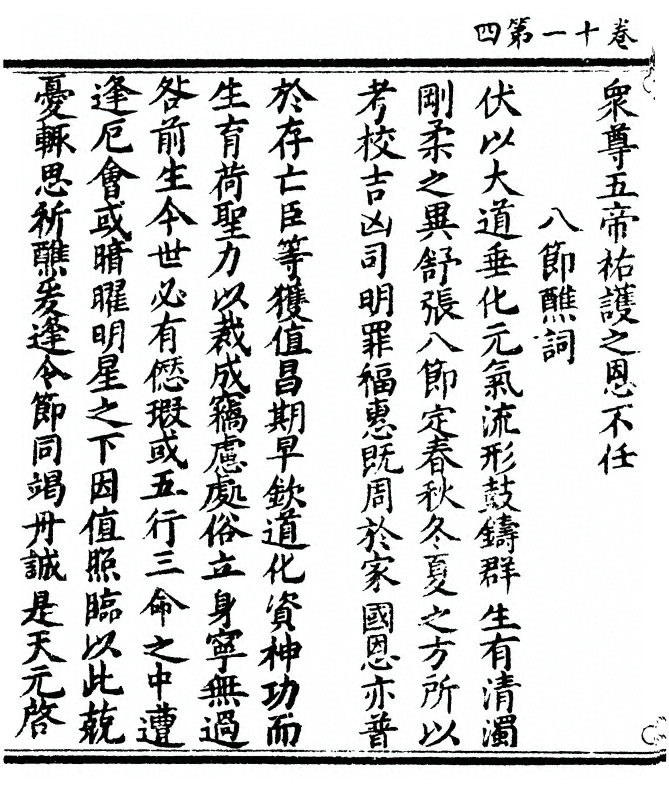 卷十一第四
衆尊五帝祐護之恩不任
八節醮詞
伏以大道垂化元氣流形鼓鑄群生有清濁
剛柔之異舒張八節定春秋冬夏之方所以
考校吉凶司明罪福惠既周於家國恩亦普
於存亡臣等獲值昌期早欽道化資神功而
生育荷聖力以裁成竊慮處俗立身寧無過
咎前生今世必有僽瑕或五行三命之中遭
逢厄會或暗曜明星之下因值照臨以此兢
憂輒思祈醮爰逢令節同竭丹誠是天元啓